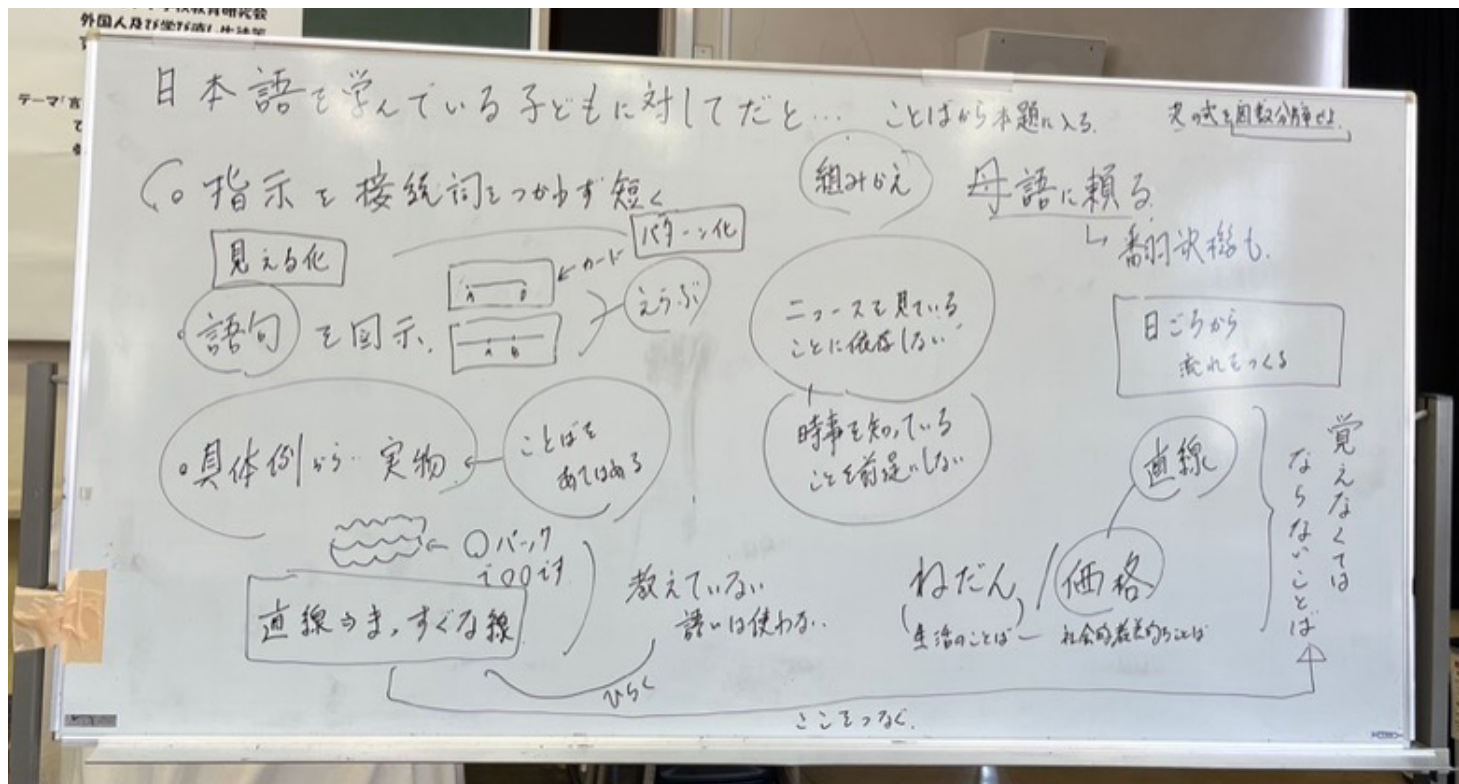 外国人及び学び直し生徒等
テーマ「言
日本語を学んでいる子どもに対してだと…
ことばから本題に入る。
次の式を因数分解せよ。
指示を接続詞をつかわず短く
組みかえ
母語に頼る。
翻訳機も。
見える化
パターン化
カード
A B
A B
えらぶ
語句を図示。
ニュースを見ている
ことに依存しない
日ごろから
流れをつくる
具体例から…実物
ことばを
あてはめる
時事を知っている
ことを前提にしない
直線
覚えなくては
ならないことば
パック
直線→ま,すぐな線
教えていない
語いは使わない。
ひらく
ねだん/価格
(生活のことば)
社会的教養的なことば
ここをつなぐ。